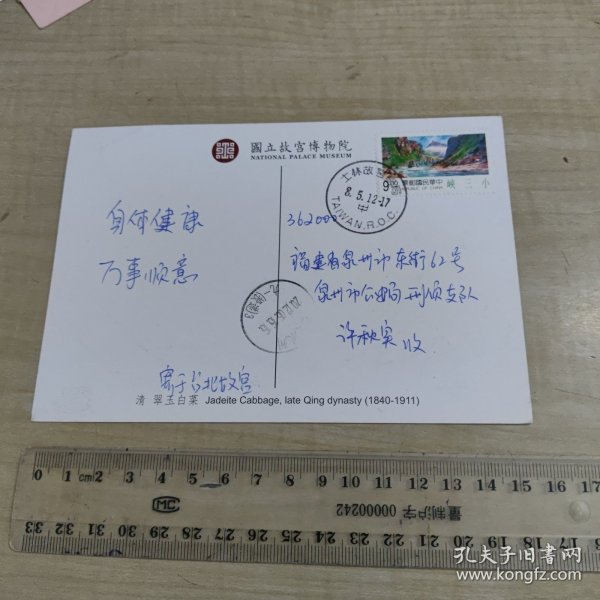 國立故宮博物院
NATIONAL PALACE MUSEUM
士林故宮
8.5.12-17
TAIWAN.R.O.C.
9.00
中華民國郵票
REPUBLIC OF CHINA
小三峽
身体健康
万事顺意
寄于台北故宫
362000
福建省泉州市东街62号
泉州市公安局刑侦支队
许秋实 收
清 翠玉白菜 Jadeite Cabbage, late Qing dynasty (1840-1911)
0 1 cm 2 3 4 5 6 7 8 9 10 11 12 13 14 15 16 17
MC
量制沪字 00000242
33 32 31 30 29 28 27 26 25 24 23 22 21 20 19 18 17 16
孔夫子旧书网
www.kongfz.com